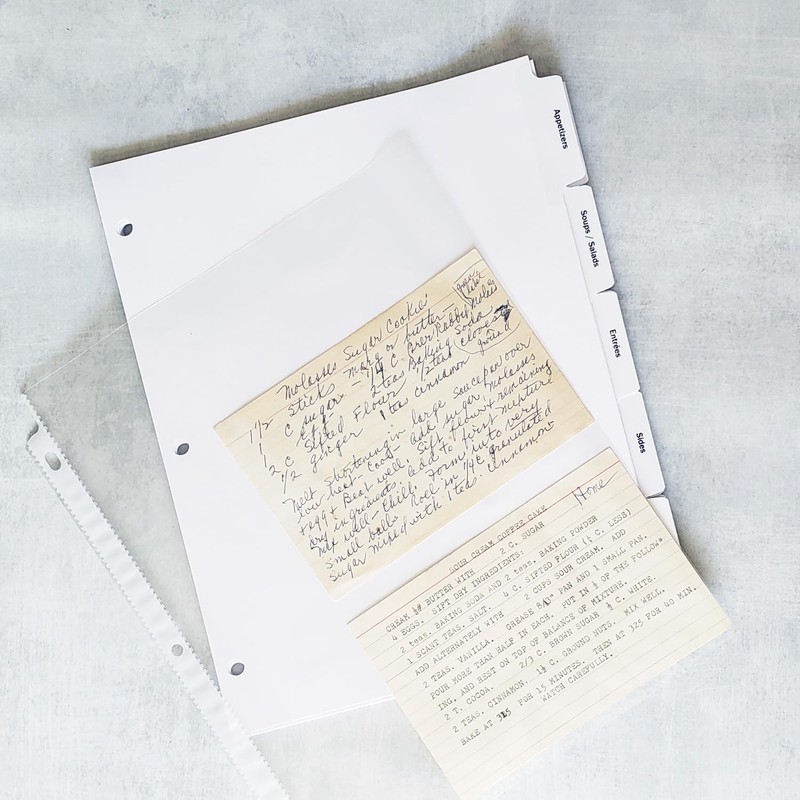 Appetizers
Soups / Salads
Entrées
Sides
Molasses Sugar Cookies
1 1/2 sticks marg or butter
1 C sugar - 1/4 C Grer Rabbit Molasses
1 egg 2 teas Baking Soda
2 C Sifted Flour 1/2 teas cloves
1/2 ginger 1 tea cinnamon ground
Melt shortening in large saucepan over
low heat. Cool. add sugar, molasses
egg & Beat well. Sift flour, remaining
dry ingredients. add to first mixture
mix well - chill. Form into very
small balls. Roll in 1/4 C granulated
sugar mixed with 1 teas. cinnamon
Home
SOUR CREAM COFFEE CAKE
CREAM BUTTER WITH 2 C. SUGAR
4 EGGS. SIFT DRY INGREDIENTS:
2 teas. BAKING SODA AND 2 teas. BAKING POWDER
1 SCANT TEAS. SALT. 4 C. SIFTED FLOUR (¼ C. LESS)
ADD ALTERNATELY WITH 2 CUPS SOUR CREAM. ADD
2 TEAS. VANILLA. GREASE 8/13" PAN AND 1 SMALL PAN.
POUR MORE THAN HALF IN EACH. PUT IN ½ OF THE FOLLOW-
ING. AND REST ON TOP OF BALANCE OF MIXTURE.
2 T. COCOA. 2/3 C. BROWN SUGAR ½ C. WHITE.
2 TEAS. CINNAMON. 1½ C. GROUND NUTS. MIX WELL.
BAKE AT 325 FOR 15 MINUTES. THEN AT 325 FOR 40 MIN.
WATCH CAREFULLY.